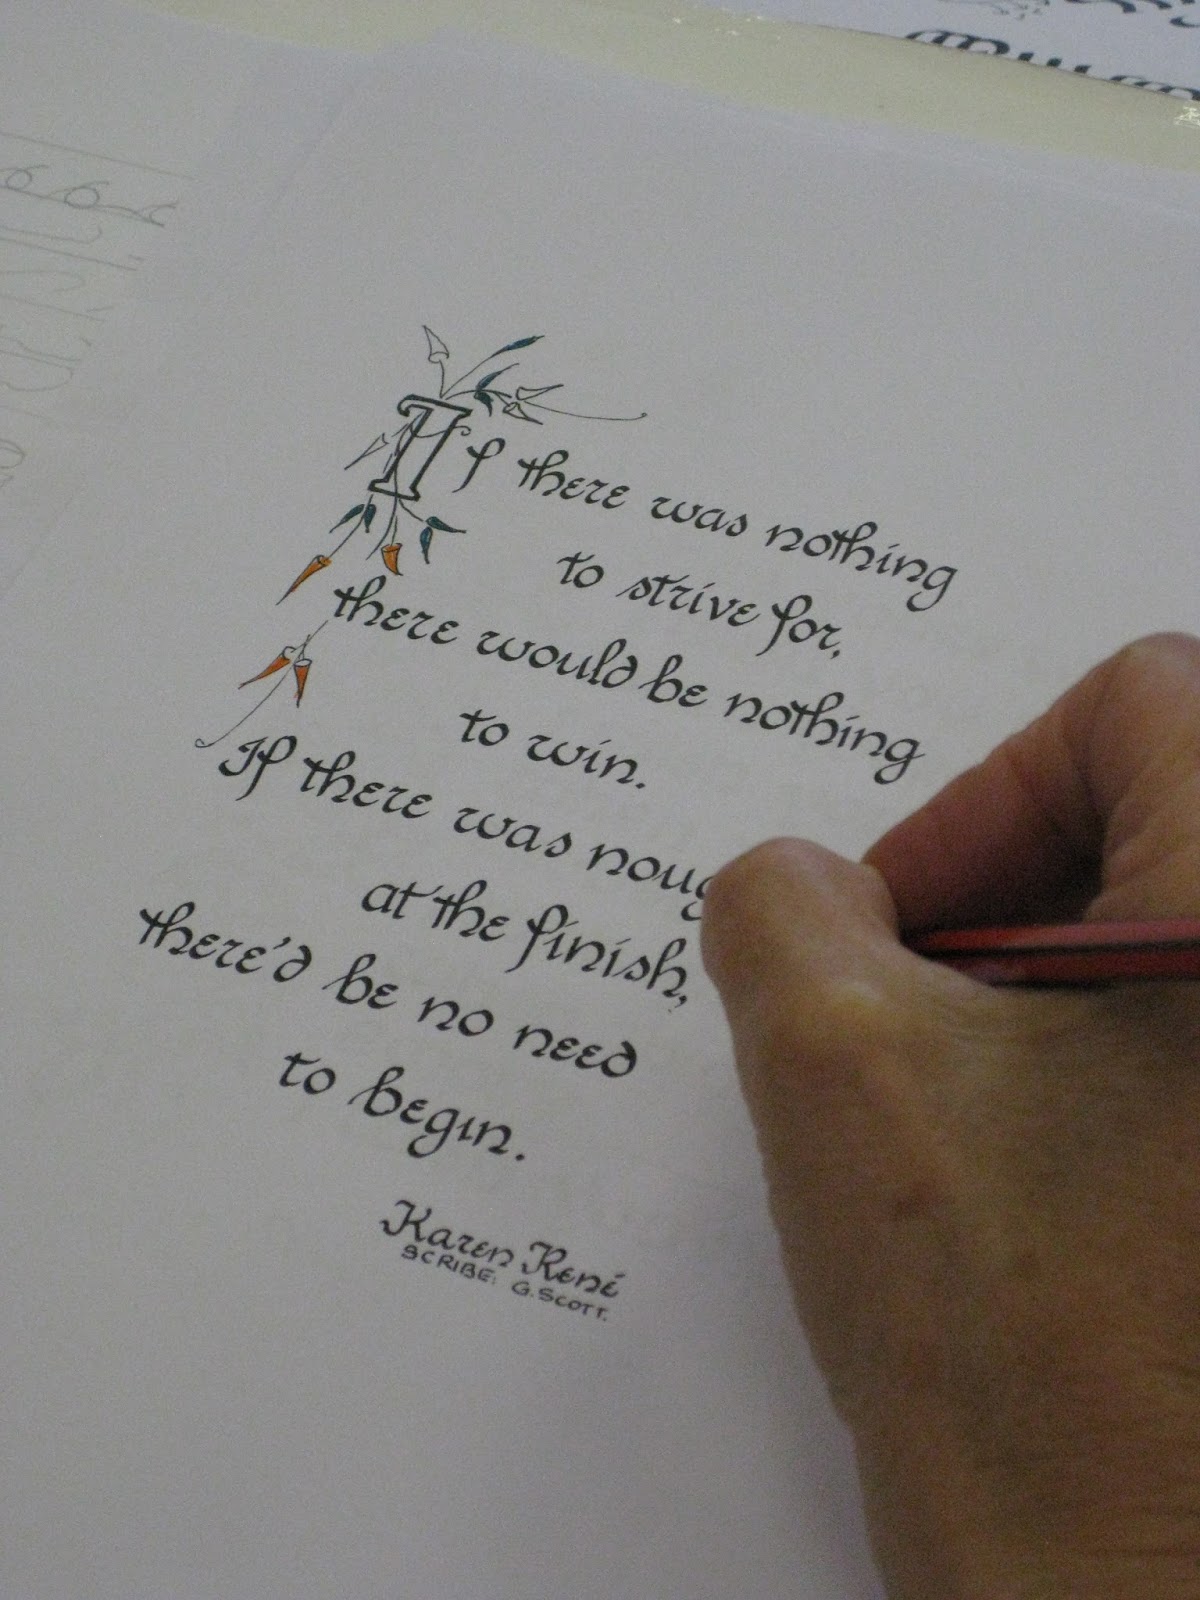 If there was nothing
to strive for,
there would be nothing
to win.
If there was noug
at the finish,
there'd be no need
to begin.
Karen René
SCRIBE: G. SCOTT.